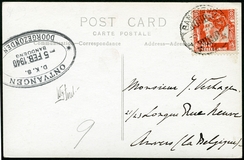 POST CARD
CARTE POSTALE
Correspondance
Adresse
ONTVANGEN
5 FEB 1940
D.K.B.
BANDOENG
DOORGEZONDEN
Monsieur J. Verhagen
Longue Rue Neuve
Anvers (la Belgique)
9